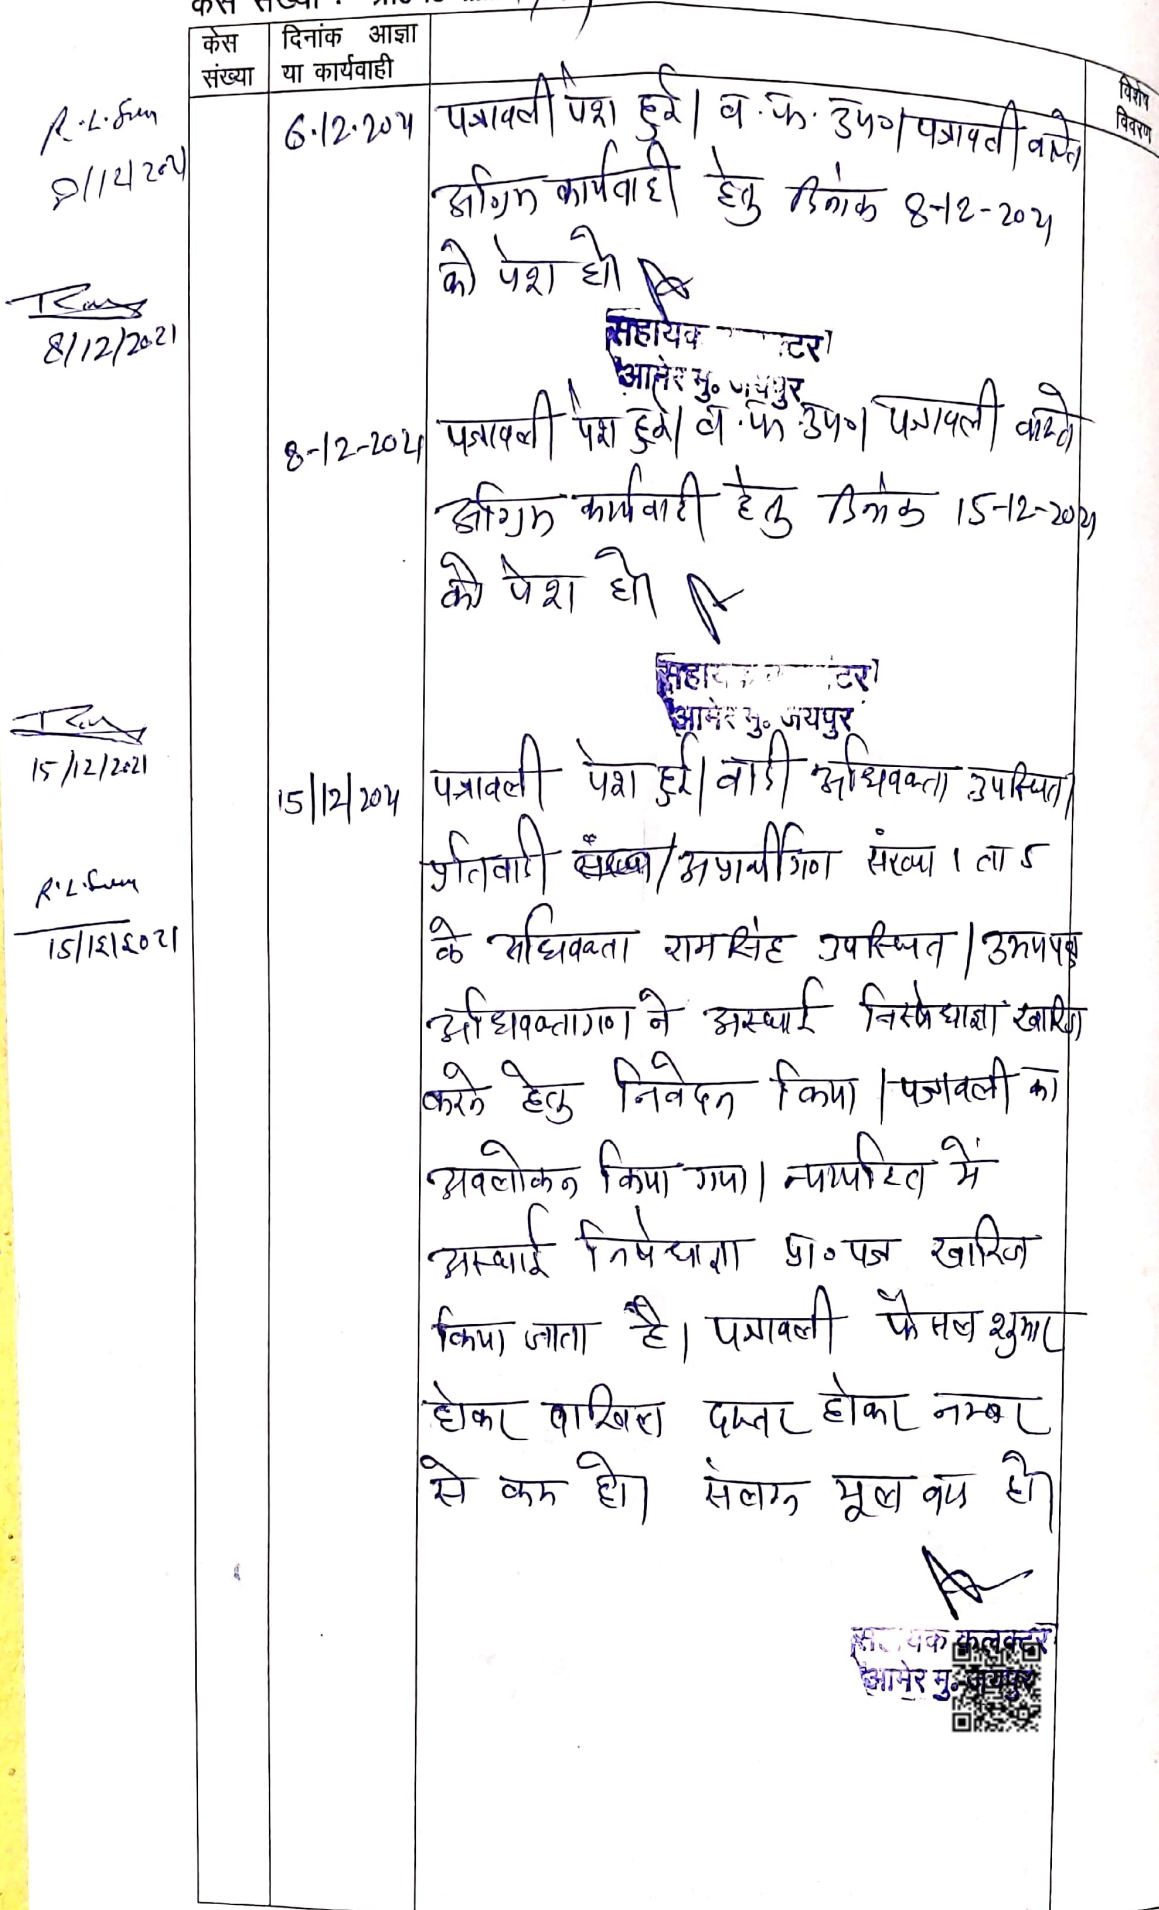 केस संख्या :
केस संख्या
दिनांक आज्ञा या कार्यवाही
विशेष विवरण
6.12.2021 पत्रावली पेश हुई। व.फ. उप०। पत्रावली वास्ते
अग्रिम कार्यवाही हेतु दिनांक 8-12-2021
को पेश हो।
सहायक टर
आमेर मु० जयपुर
R.L.
8/12/2021
8/12/2021
8-12-2021 पत्रावली पेश हुई। व.फ. उप०। पत्रावली वास्ते
अग्रिम कार्यवाही हेतु दिनांक 15-12-2021
को पेश हो।
टर
आमेर मु० जयपुर
15/12/2021
15/12/2021 पत्रावली पेश हुई। वादी अधिवक्ता उपस्थित।
प्रतिवादी /अप्रार्थीगण संख्या 1 ता 5
के अधिवक्ता रामसिंह उपस्थित। उभयपक्ष
अधिवक्तागण ने अस्थाई निषेधाज्ञा खारिज
करने हेतु निवेदन किया। पत्रावली का
अवलोकन किया गया। न्यायहित में
अस्थाई निषेधाज्ञा प्रा०पत्र खारिज
किया जाता है। पत्रावली फैसल शुमार
होकर दाखिल दफ्तर होकर नम्बर
से कम हो। संलग्न मूल वाद हो।
R.L.
15/12/2021
सहायक कलक्टर
आमेर मु० जयपुर